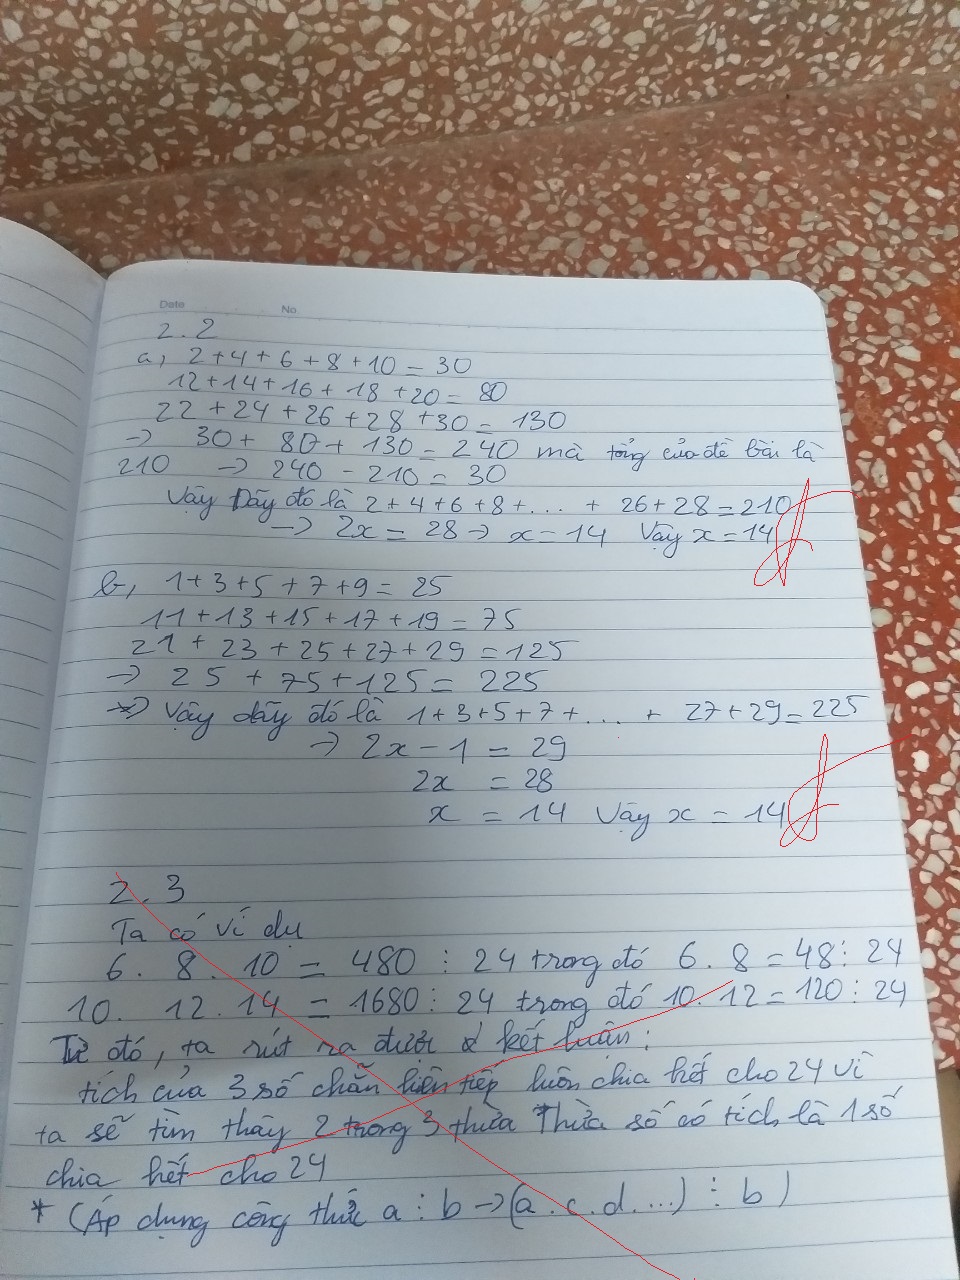 Date No
2.2
a, 2+4+6+8+10=30
12+14+16+18+20=80
22+24+26+28+30=130
→ 30+80+130=240 mà tổng của đề bài là
210 → 240-210=30
Vậy Dãy đó là 2+4+6+8+...+26+28=210
→ 2x=28→ x=14 Vậy x=14
b, 1+3+5+7+9=25
11+13+15+17+19=75
21+23+25+27+29=125
→ 25+75+125=225
→ Vậy dãy đó là 1+3+5+7+...+27+29=225
→ 2x-1=29
2x=28
x=14 Vậy x=14
2.3
Ta có ví dụ
6.8.10=480⋮24 trong đó 6.8=48⋮24
10.12.14=1680⋮24 trong đó 10.12=120⋮24
Từ đó, ta rút ra được kết luận:
tích của 3 số chẵn liên tiếp luôn chia hết cho 24 vì
ta sẽ tìm thấy 2 trong 3 thừa Thừa số có tích là 1 số
chia hết cho 24
* (Áp dụng công thức a⋮b→(a.c.d....)⋮b)